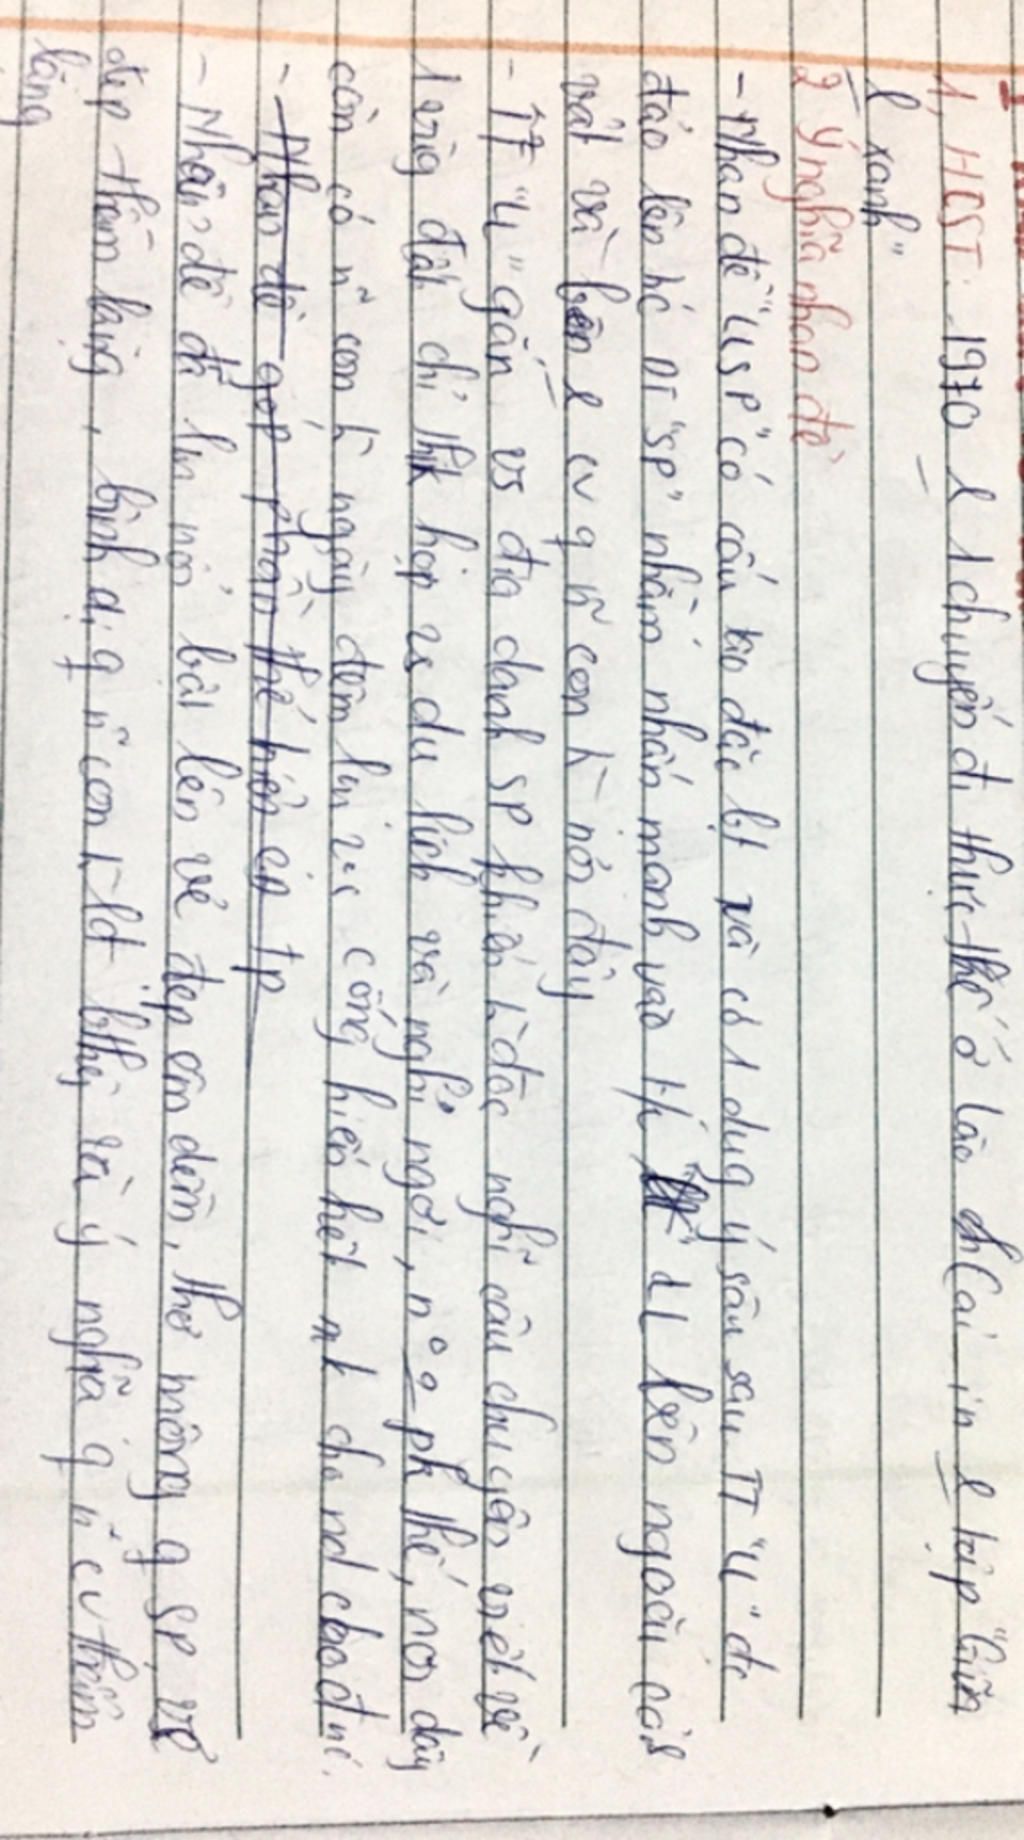 1, HCST: -1970 l 1 chuyến đi thực thế ở Lào Cai in l tập "Giữa
l xanh"
2 Ý nghĩa nhan đề
- Nhan đề "LLSP" có cấu tạo đặc bt và có 1 dụg ý sâu sau TT "LL" đc
đảo lên trc DT "SP" nhằm nhấn mạnh vào t/c lặng lẽ bên ngoài cảh
vật và bên l cv q n~ con ng nơi đây
- TT "LL" gắn vs địa danh SP khiến ng đọc nghĩ câu chuyện viết về
1 vùng đất chỉ thik hợp vs du lịch và nghỉ ngơi, n o pk thế, nơi đây
còn có n~ con ng ngày đêm lm vc cống hiến hết mk cho nd cho đnc.
- Nhan đề góp phần thể hiện cđ tp
- Nhan đề đã lm nổi bật lên vẻ đẹp êm đềm, thơ mộng q SP, vẻ
đẹp thầm lặng, bình dị q n~ con ng lđ bthg và ý nghĩa q n~ cv thầm
lặng